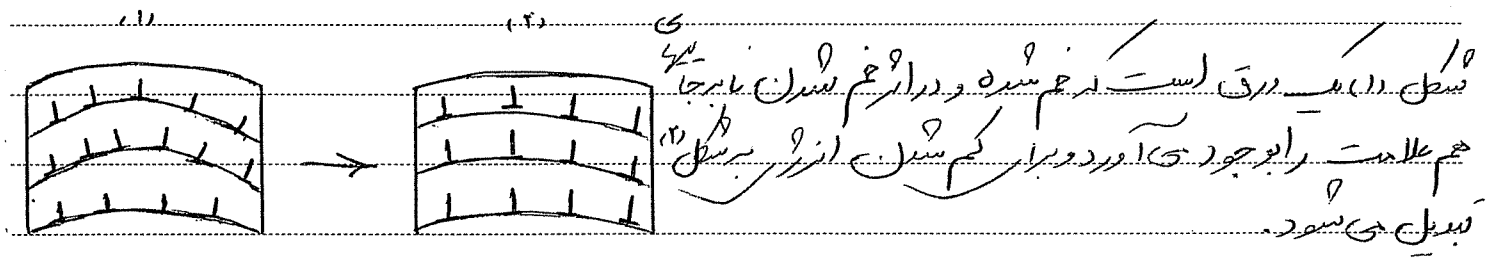 (۱) (۲)
شکل (۱) یک ورق است که خم شده و در اثر خم شدن نابجائیهای
هم علامت را بوجود می‌آورد و برای کم شدن انرژی به شکل (۲)
تبدیل می‌شود.